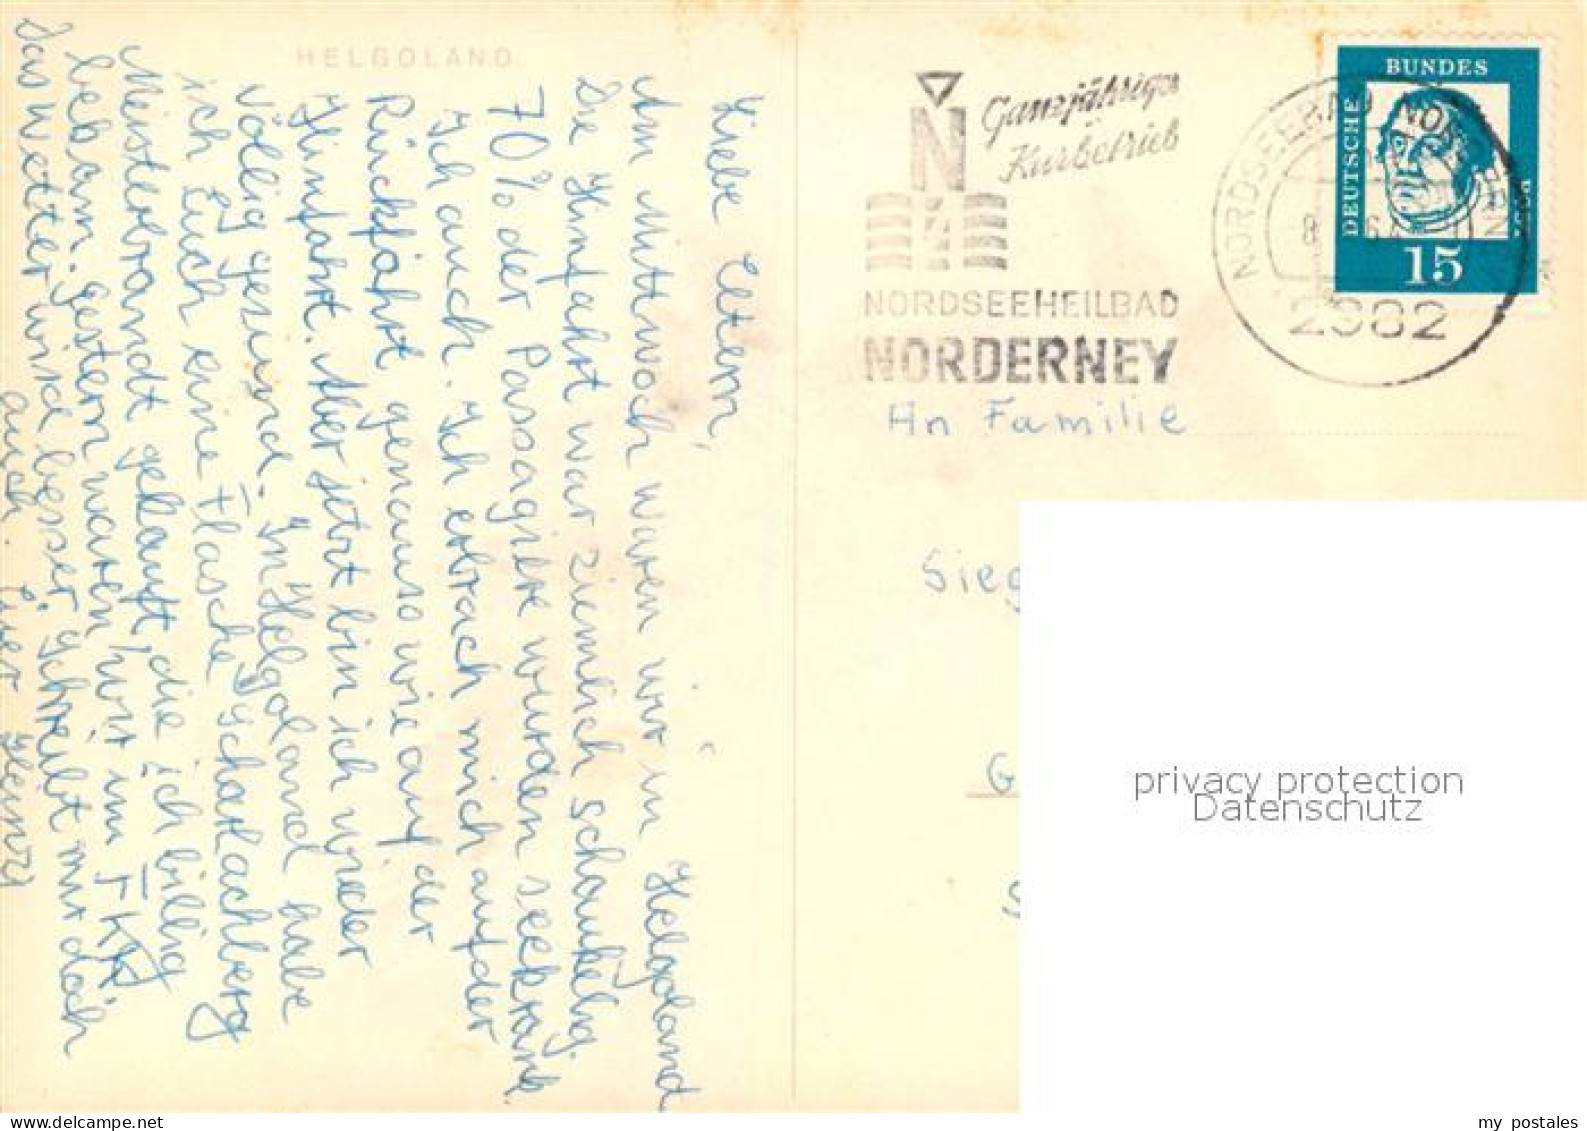 HELGOLAND
Liebe Eltern,
Am Mittwoch waren wir in Helgoland.
Die Hinfahrt war ziemlich schaukelig.
70% der Passagiere wurden seekrank.
Ich auch. Ich erbrach mich auf der
Rückfahrt genauso wie auf der
Hinfahrt. Aber jetzt bin ich wieder
völlig gesund. In Helgoland habe
ich Euch eine Flasche Scharlachberg
Meisterbrandt gekauft, die ich billig
bekam. Gestern waren wir im FKK
Das Wetter wird besser schreibt mir doch
auch. Euer Henry
Ganzjähriger
Kurbetrieb
N
NORDSEEHEILBAD
NORDERNEY
NORDSEEBAD NORDERNEY
2982
DEUTSCHE
BUNDES
POST
15
An Familie
Sieg
G
privacy protection
Datenschutz
my postales